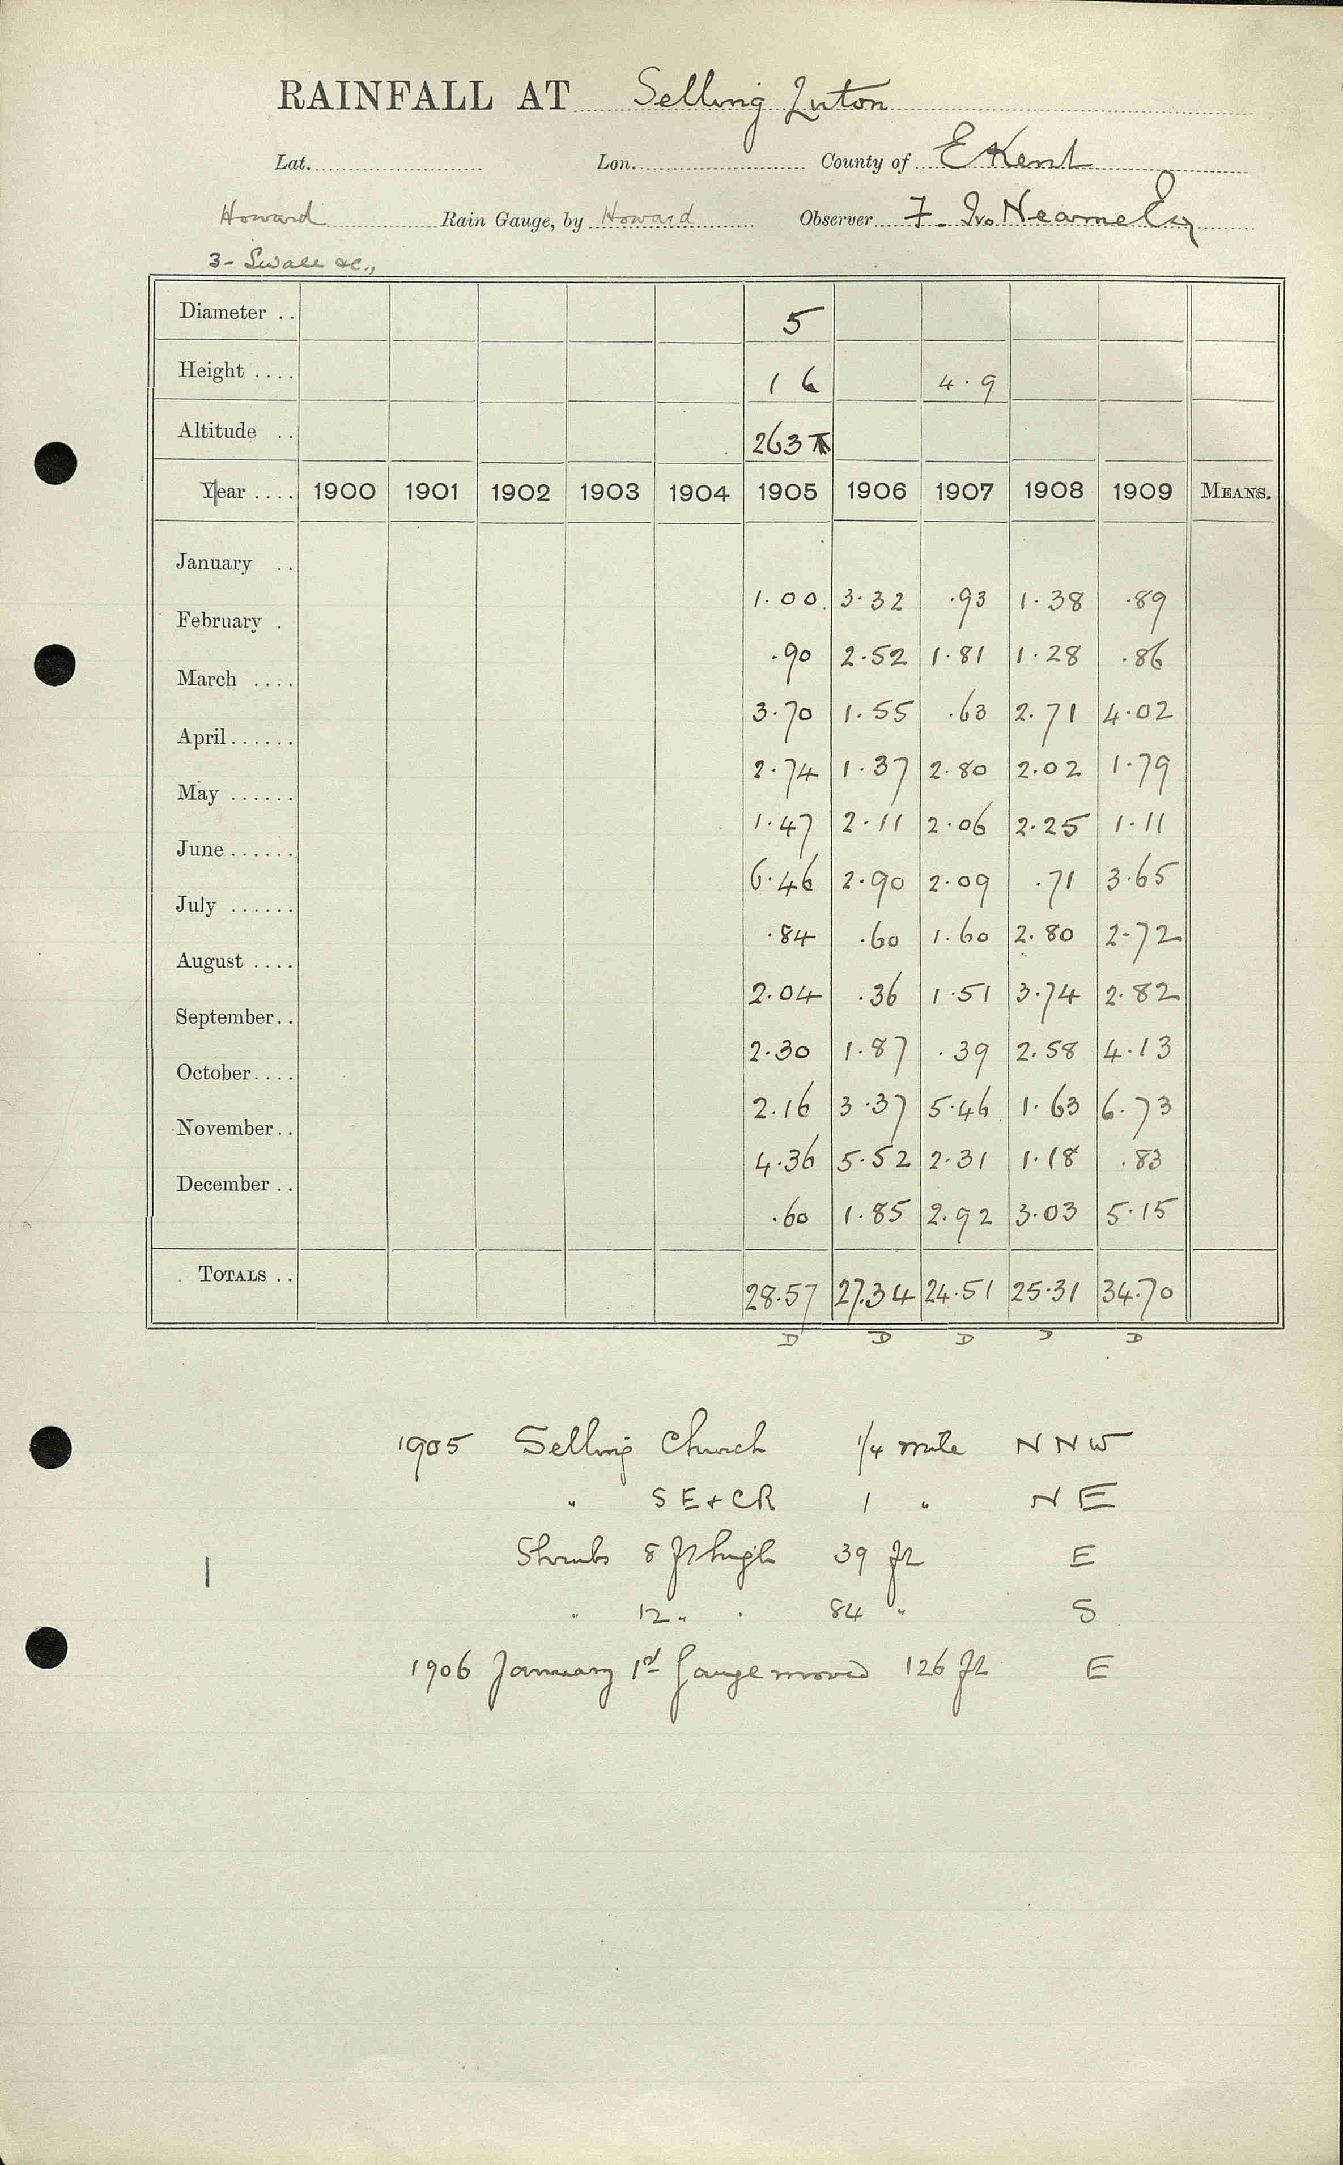 RAINFALL AT Selling Luton
Lat. Lon. County of E Kent
Howard Rain Gauge, by Howard Observer F. Neame Esq
3- Swale &c.,
Diameter .. 5
Height .... 1 6 4.9
Altitude .. 263
Year .... 1900 1901 1902 1903 1904 1905 1906 1907 1908 1909 MEANS.
January .. 1.00 3.32 .93 1.38 .89
February . .90 2.52 1.81 1.28 .86
March .... 3.70 1.55 .63 2.71 4.02
April ...... 2.74 1.37 2.80 2.02 1.79
May ...... 1.47 2.11 2.06 2.25 1.11
June ...... 6.46 2.90 2.09 .71 3.65
July ...... .84 .60 1.60 2.80 2.72
August .... 2.04 .36 1.51 3.74 2.82
September.. 2.30 1.87 .39 2.58 4.13
October.... 2.16 3.37 5.46 1.63 6.73
November.. 4.36 5.52 2.31 1.18 .83
December .. .60 1.85 2.92 3.03 5.15
TOTALS .. 28.57 27.34 24.51 25.31 34.70
D D D D D
1905 Selling Church 1/4 mile N N W
" S E & C R 1 " N E
Shrubs 8 ft high 39 ft E
" 12 " " 84 " S
1906 January 1st Gauge moved 126 ft E